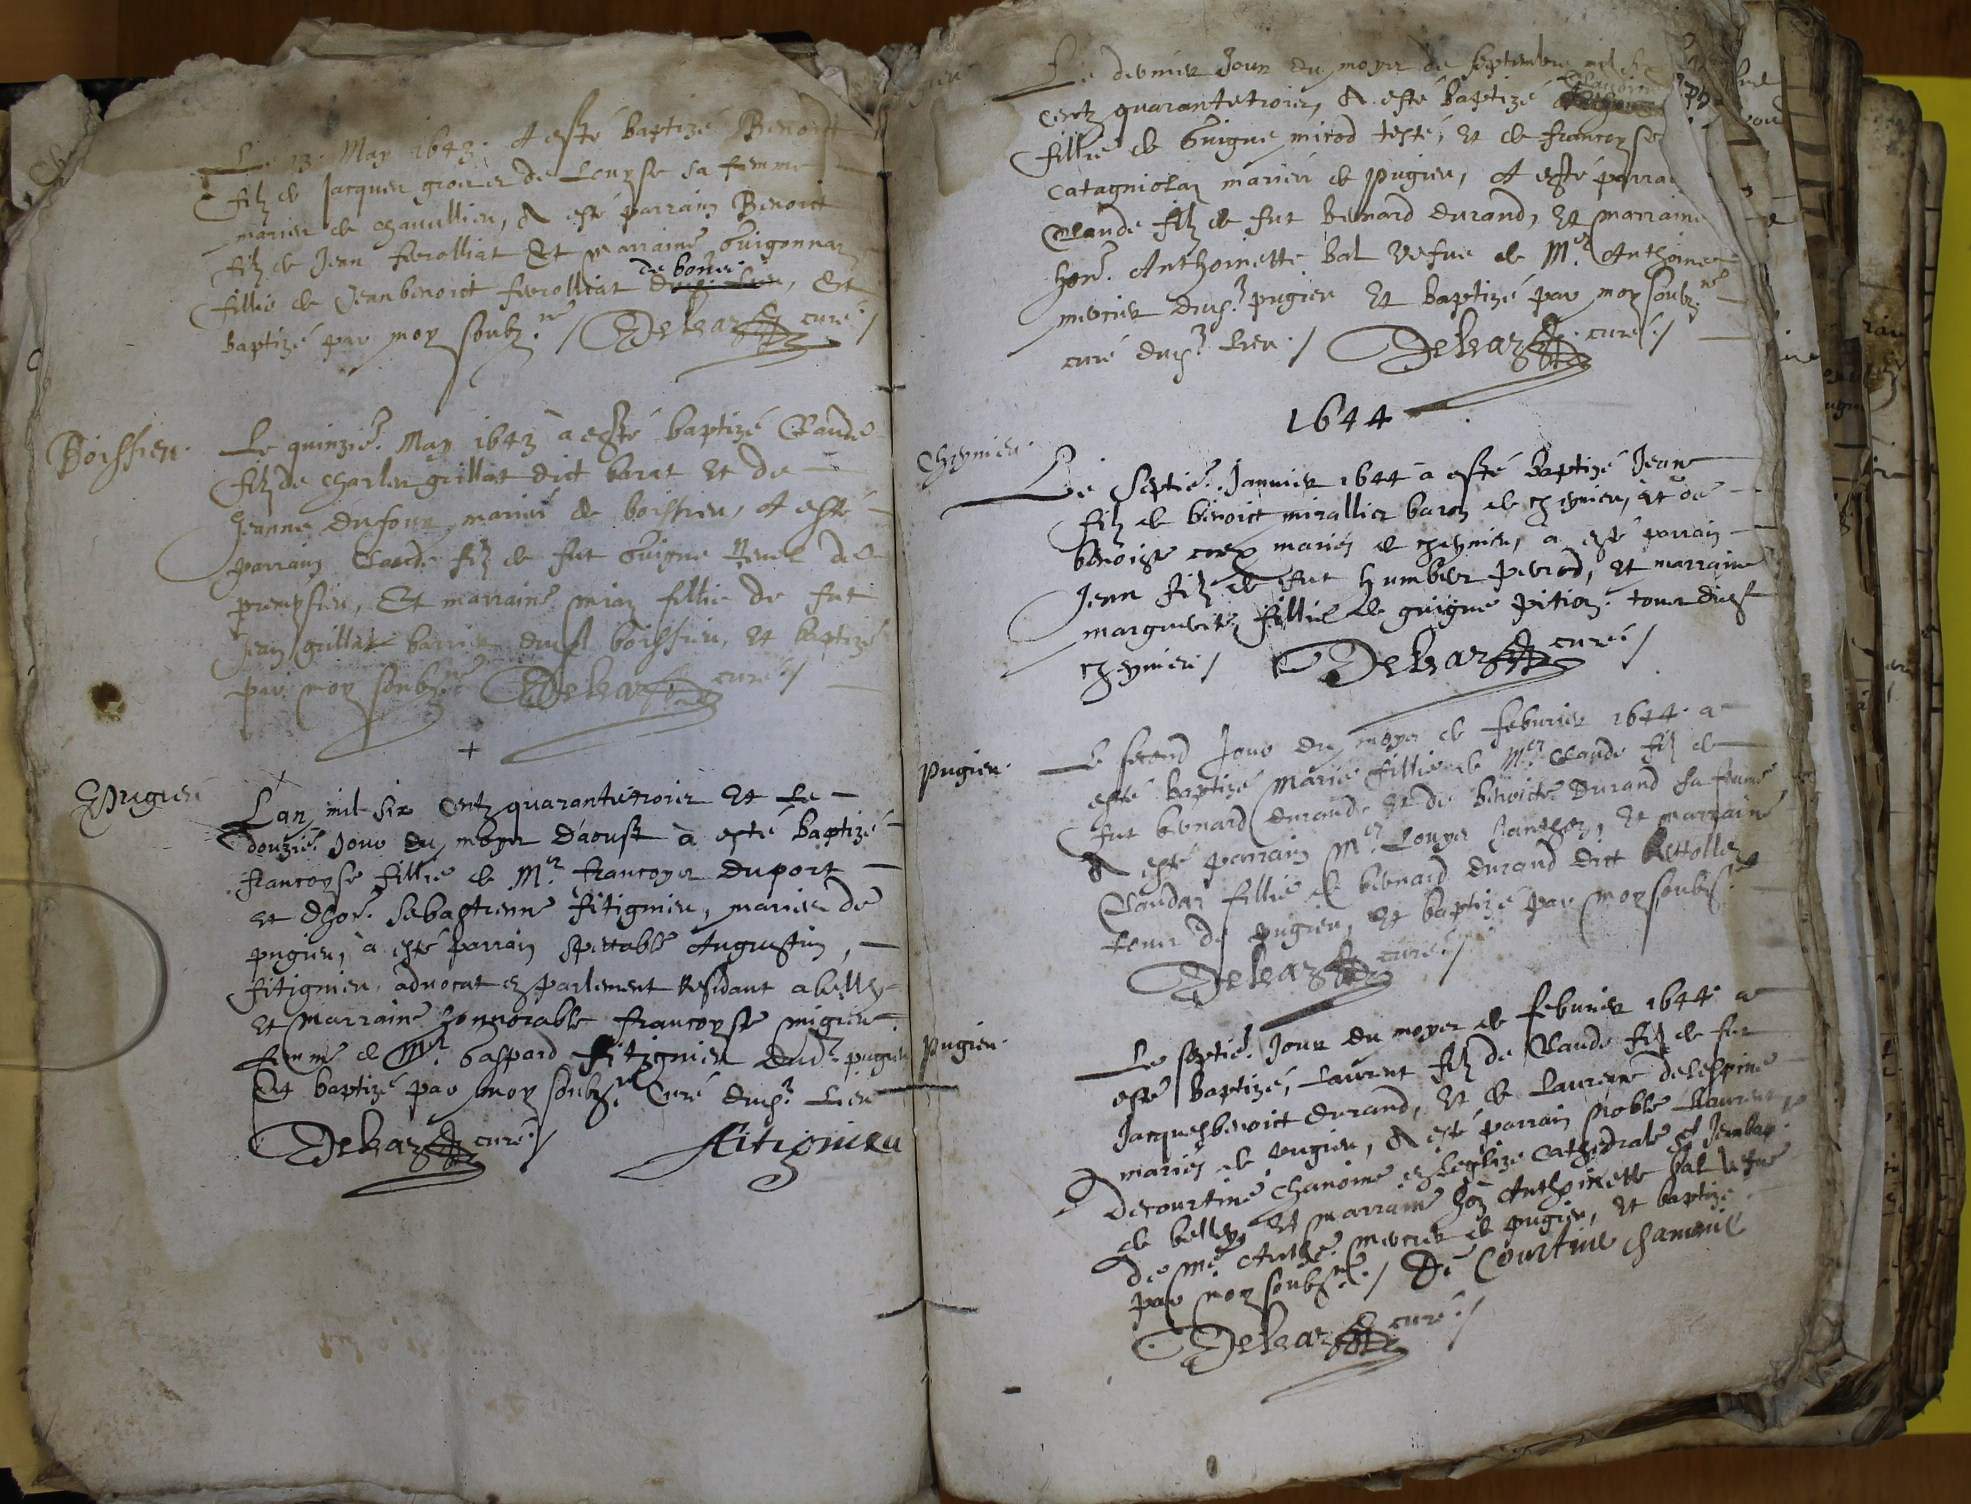 Le 13. May 1643. A esté baptizé Benoict
filz de Jacques de Louyse sa femme
mariés de chavillieu, A esté parrain Benoict
filz de Jean fevrolliat Et marraine Guigonnaz
fillie de Jean benoict fevrolliat de boissieu, Et
baptizé par moy soubz.né / curé./
Boissieu.
Le quinzié. May 1643 à esté baptizé Claude
filz de Charles grillat dict barat et de
Jeanne dufour mariés de boissieu, A esté
parrain Claude filz de fut Guigue Revel de
prempsieu, Et marraine miaz fillie de fut
Jean grillat dud boissieu, et baptizé
par moy soubz.né curé./
+
Pugieu
Lan mil six centz quarantetroies et le
douzié. Jour du moys d'aoust à esté baptizé
francoyse fillie de M.re francoys duport
et d'hon. sebastienne fitignieu, mariés de
pugieu, à esté parrain spectable Augustin
fitignieu, advocat en parlement Residant a belley
et Marraine honnorable francoyse migieu
femme de M.re Gaspard fitignieu dud. pugieu
Et baptizé par moy soubz.né Curé duds. Lieu
curé./ fitignieu
Le dernier Jour du moys de septembre mil six
centz quarantetroies, A esté baptizé
fillie de Guigue micod testé, et de francoyse
mariés de pugieu, A esté parrain
Claude filz de fut bernard durand, et marraine
hon. Anthoinette bal vefve de M.re Anthoine
mercier duds. pugieu et baptizé par moy soubz.né
curé duds. Lieu./ curé./
1644
Cheynieu.
Le septié. Janvier 1644 à esté baptizé Jean
filz de benoict mirallier baron de cheynieu, et de
benoiste mariés de cheynieu, a esté parrain
Jean filz de fut humbert perrod, et marraine
marguerite fillie de guigue pition tous duds
cheynieu / curé./
Pugieu.
Le second Jour du moys de febvrier 1644. a
esté baptizé Marie fillie de M.re Claude filz de
fut bernard durand et de benoicte Durand sa femme
A esté parrain M.re Louys, et marraine
Claudaz fillie de bernard durand dict
tous de pugieu, et baptizé par moy soubz.né
curé./
Pugieu.
Le septié. Jour du moys de febvrier 1644. a
esté baptizé, Laurent filz de Claude filz de fut
Jacques benoict durand, et de Laurence delespine
mariés de pugieu, A esté parrain Noble Laurent
decourtine chanoine en leglize Cathedrale st Jeanbap.
de belley, et marraine hon Anthoinette bal vefve
de M.re Anthe. mercier de pugieu, et baptizé
par moy soubz.né./ De Courtine chanoine
curé./